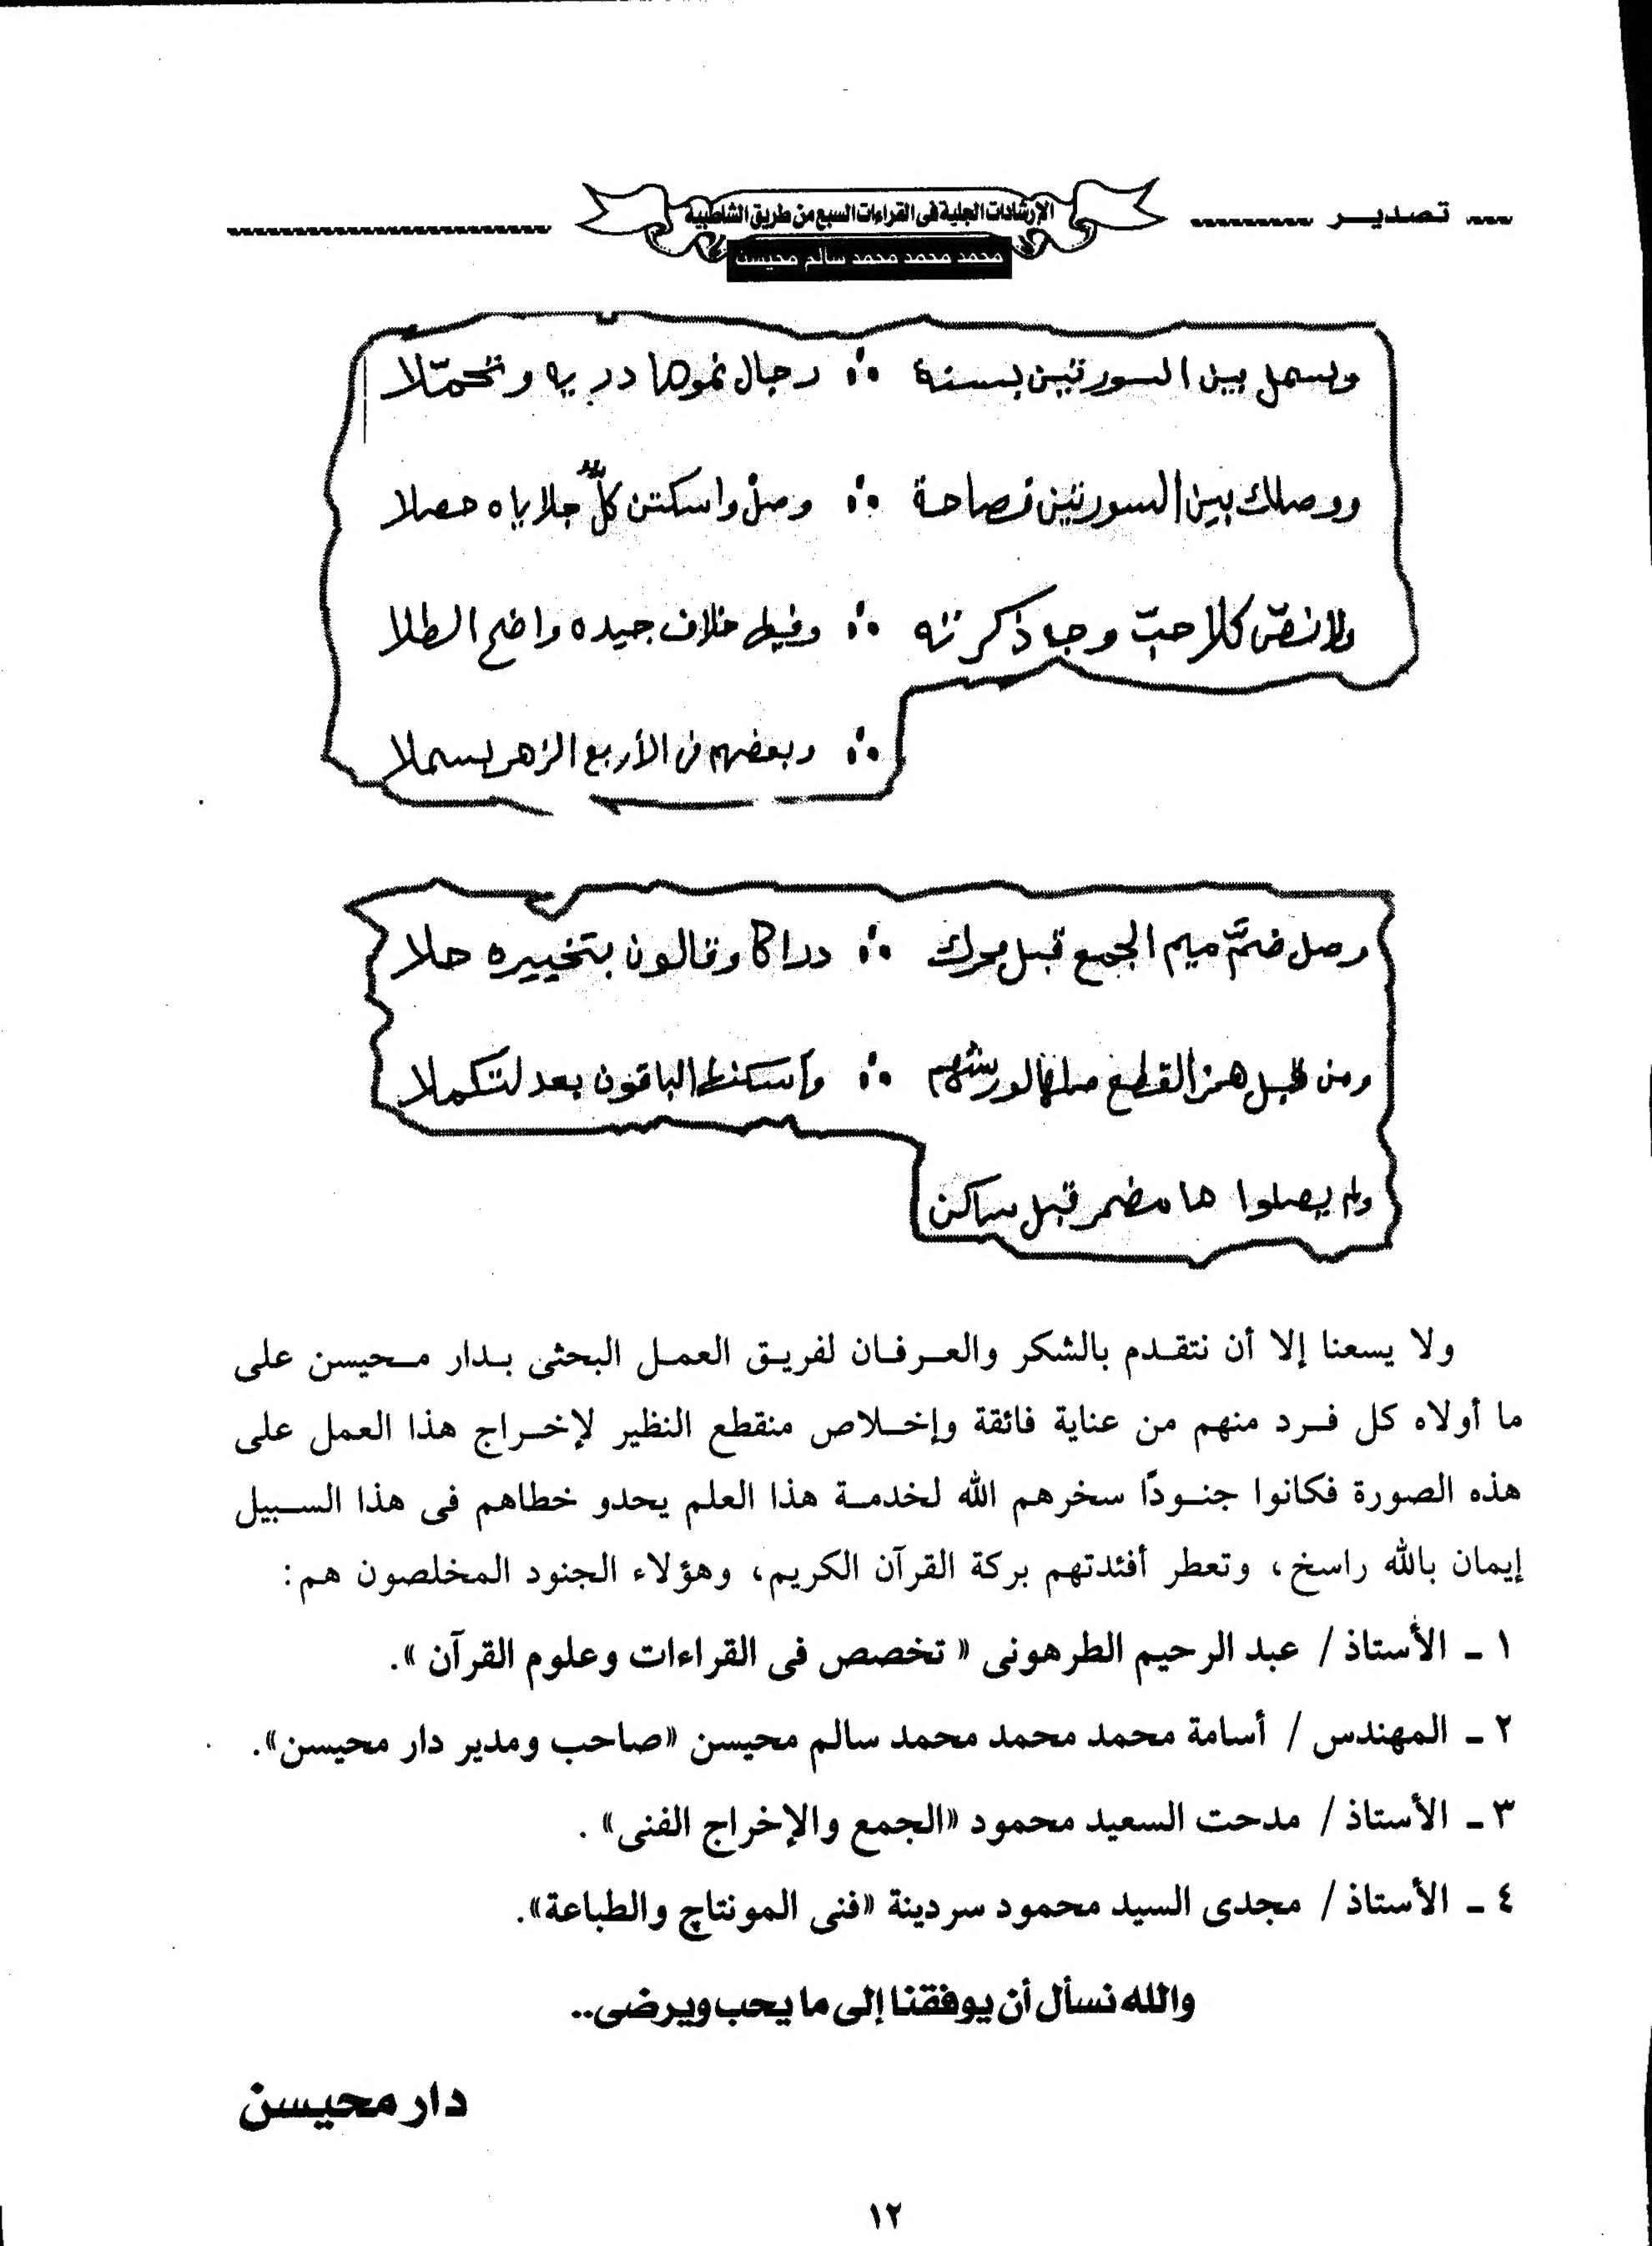 تصديـــر
الإرشادات الجلية فى القراءات السبع من طريق الشاطبية
محمد محمد محمد سالم محيسن
وبسمل بين السورتين بسنة ∴ رجال نموها درية وتحمّلا
ووصلك بين السورتين فصاحة ∴ وصل واسكتن كلٌّ جلاياه حصلا
ولا نصّ كلا حبّ وجه ذكرته ∴ وفيها خلاف جيده واضح الطلا
∴ وبعضهم فى الأربع الزهر بسملا
وصل ضمَّ ميم الجمع قبل محرك ∴ دراكا وقالون بتخييره جلا
ومن قبل همز القطع صلها لورشهم ∴ وأسكنها الباقون بعد لتكملا
ولم يصلوا ها مضمر قبل ساكن
ولا يسعنا إلا أن نتقدم بالشكر والعرفان لفريق العمل البحثى بدار محيسن على
ما أولاه كل فرد منهم من عناية فائقة وإخلاص منقطع النظير لإخراج هذا العمل على
هذه الصورة فكانوا جنودًا سخرهم الله لخدمة هذا العلم يحدو خطاهم فى هذا السبيل
إيمان بالله راسخ، وتعطر أفئدتهم بركة القرآن الكريم، وهؤلاء الجنود المخلصون هم:
١ ـ الأستاذ / عبد الرحيم الطرهونى « تخصص فى القراءات وعلوم القرآن ».
٢ ـ المهندس / أسامة محمد محمد محمد سالم محيسن «صاحب ومدير دار محيسن».
٣ ـ الأستاذ / مدحت السعيد محمود «الجمع والإخراج الفنى» .
٤ ـ الأستاذ / مجدى السيد محمود سردينة «فنى المونتاچ والطباعة».
والله نسأل أن يوفقنا إلى ما يحب ويرضى..
دار محيسن
١٢